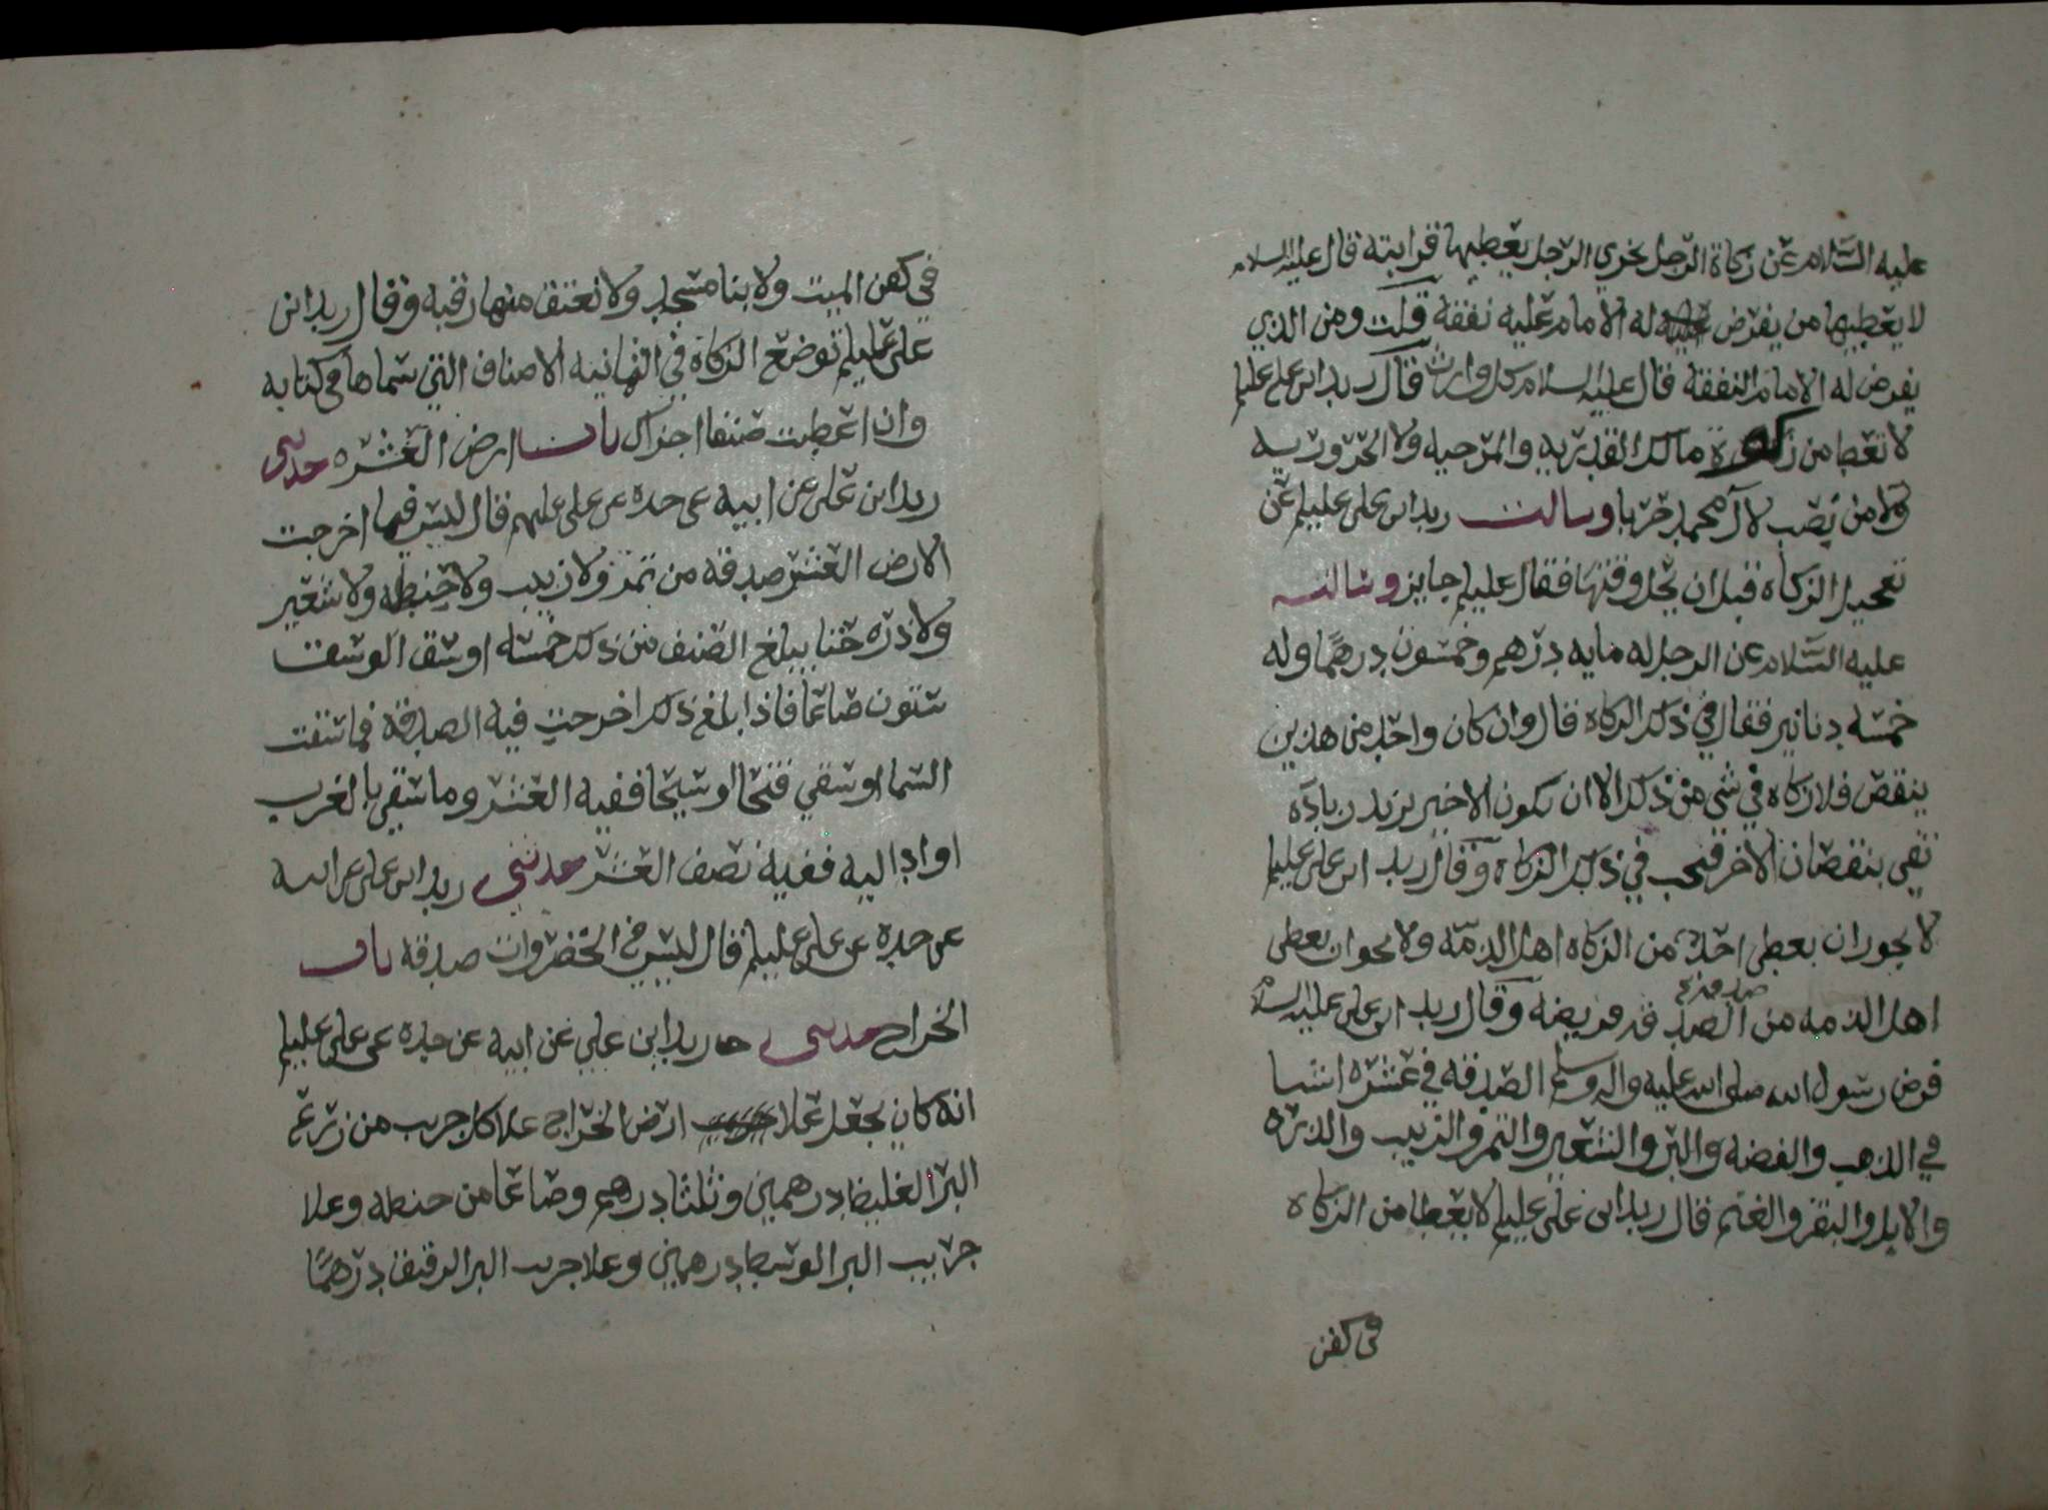 عليه السلام عن زكاة الرجل يجزي الرجل يعطيها قرابته قال عليه السلام
لا يعطيها من يفرض له الامام عليه نفقة قلت ومن الذي
يفرض له الامام النفقة قال عليه السلام كل وارث قال زيد ابن علي عليلم
لا تعطا من زكوة مالك القدريه والمرجيه ولا الحروريه
ولا من نصب لآل محمد حربا وسالت زيد ابن علي عليلم عن
تعجيل الزكاه قبل ان يحل وقتها فقال عليلم جايز وسالته
عليه السلام عن الرجل له مايه درهم وخمسون درهمًا وله
خمسه دنانير فقال في ذلك الزكاه قال وان كان واحد من هذين
ينقص فلا زكاه في شي من ذلك الا ان يكون الاخير يزيد زياده
تفي بنقصان الاخر فتجب في ذلك الزكاه وقال زيد ابن علي عليلم
لا يجوز ان يعطى احد من الزكاه اهل الذمّه ولا يجوا ان يعطى
اهل الذمه من الصد صدقته قه فريضه وقال زيد ابن علي عليه السلام
فرض رسول الله صلى الله عليه واله وسلم الصدقه في عشره اشيا
في الذهب والفضه والبر والشعير والتمر والزبيب والذره
والابل والبقر والغنم قال زيد ابن علي عليلم لا يعطا من الزكاه
في كفن
في كفن الميت ولا بنا مسجد ولا تعتق منها رقبه وقال زيد ابن
علي عليلم توضع الزكاه في الثمانيه الاصناف التي سماها في كتابه
وان اعطيت صنفا اجزاك باب ارض العشره حدثني
زيد ابن علي عن ابيه عن جده عن علي عليهم قال ليس فيما اخرجت
الارض العشر صدقه من تمر ولا زبيب ولا حنطه ولا شعير
ولا ذره حتا يبلغ الصنف من ذلك خمسه اوسق الوسق
ستون صاعا فاذا بلغ ذلك اخرجت فيه الصدقة فما سقت
السما او سقي فتحا او سيحا ففيه العشر وما سقي بالغرب
او اداليه ففيه نصف العشر حدثني زيد ابن علي عن ابيه
عن جده عن علي عليلم قال ليس في الخضروات صدقه باب
الخراج حدثني زيد ابن علي عن ابيه عن جده عن علي عليلم
انه كان يجعل علا ارض الخراج علا كل جريب من زرع
البر الغليظ درهمين وثلثا درهم وصاعا من حنطه وعلا
جريب البر الوسط درهمين وعلا جريب البر الرقيق درهمًا